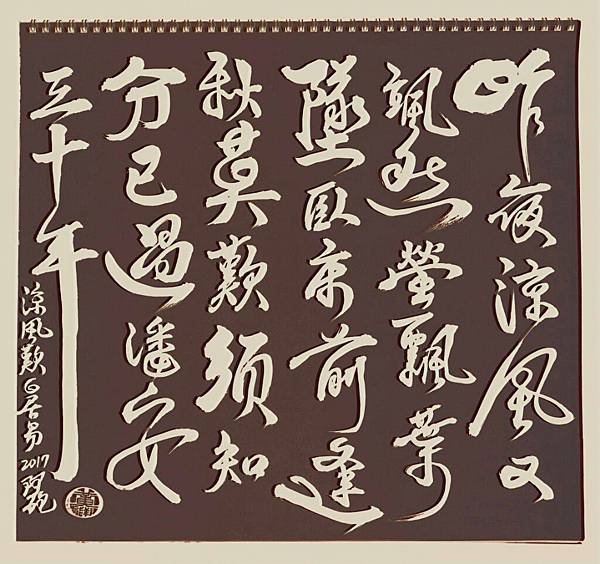 昨夜涼風又
颯然螢飄葉
墜臥床前逢
秋莫歎須知
分已過潘安
三十年
涼風歎白居易 2017